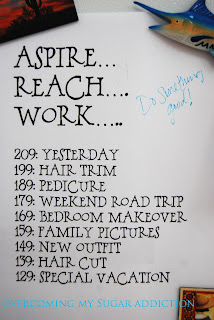 ASPIRE...
REACH....
WORK.....
Do Something
good!
209: YESTERDAY
199: HAIR TRIM
189: PEDICURE
179: WEEKEND ROAD TRIP
169: BEDROOM MAKEOVER
159: FAMILY PICTURES
149: NEW OUTFIT
139: HAIR CUT
129: SPECIAL VACATION
OVERCOMING MY SUGAR ADDICTION